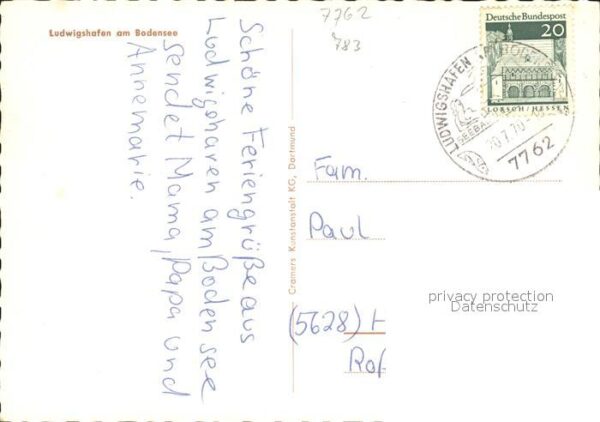 Ludwigshafen am Bodensee
7762
783
Schöne Feriengrüße aus
Ludwigshafen am Boden see
sendet Mama, Papa und
Annemarie.
Cramers Kunstanstalt KG, Dortmund
Deutsche Bundespost
20
LORSCH/HESSEN
LUDWIGSHAFEN
20.7.70
7762
Fam.
Paul
privacy protection
Datenschutz
(5628) H